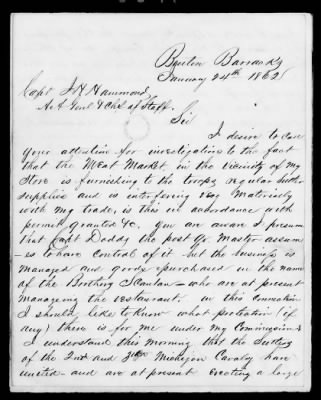 Benton Barracks
January 24th 1862
Capt J H Hammond,
A A Genl & Chf of Staff.
Sir
I desire to call
your attention for investigation to the fact
that the Meat Market, in the vicinity of my
Store is furnishing to the troops regular sutler
supplies and is interfering very Materialy
with my trade, is this in accordance with
permit granted &c. you are aware I presume
that Capt Dodds the post Qr Master assum
-es to have control of it but the business is
managed and goods purchased in the name
of the Scanlan - who are at present
managing the restaurant. in this connection
I should like to know what protection (if
any) there is for me under my Commission
I understand this morning that the Sutlers
of the 2nd and 3rd Michigan Cavalry have
united - and are at present erecting a large